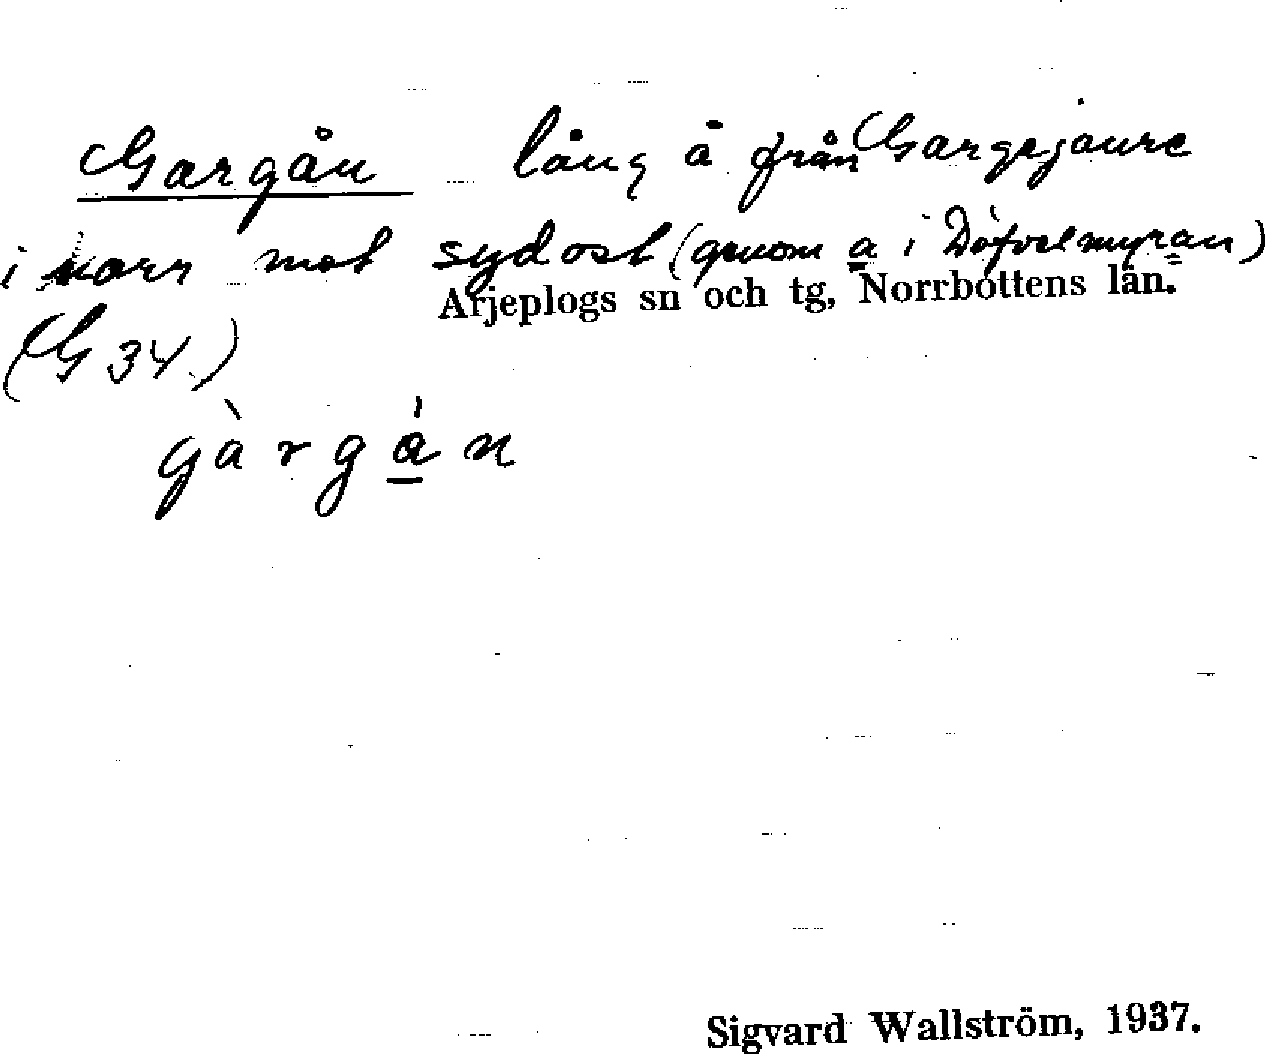 Gargån lång å från Gargejaure
i norr mot sydost (genom a i Djöfvelmyran)
Arjeplogs sn och tg, Norrbottens län.
(G 34.)
gàrgán
Sigvard Wallström, 1937.